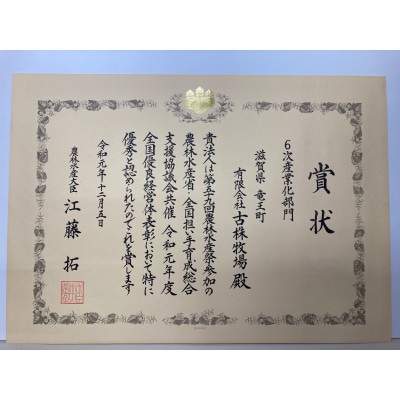 賞状
6次産業化部門
滋賀県 竜王町
有限会社古株牧場 殿
貴法人は第五十九回農林水産祭参加の
農林水産省・全国担い手育成総合
支援協議会共催 令和元年度
全国優良経営体表彰において特に
優秀と認められたのでこれを賞します
令和元年十二月五日
農林水産大臣 江藤 拓